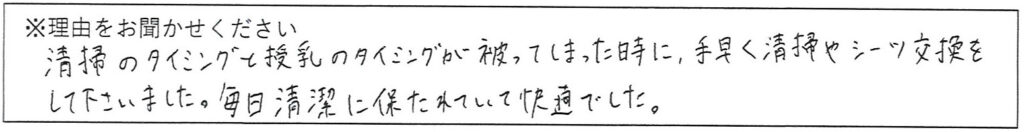 ※理由をお聞かせください
清掃のタイミングと授乳のタイミングが被ってしまった時に、手早く清掃やシーツ交換を
して下さいました。毎日清潔に保たれていて快適でした。